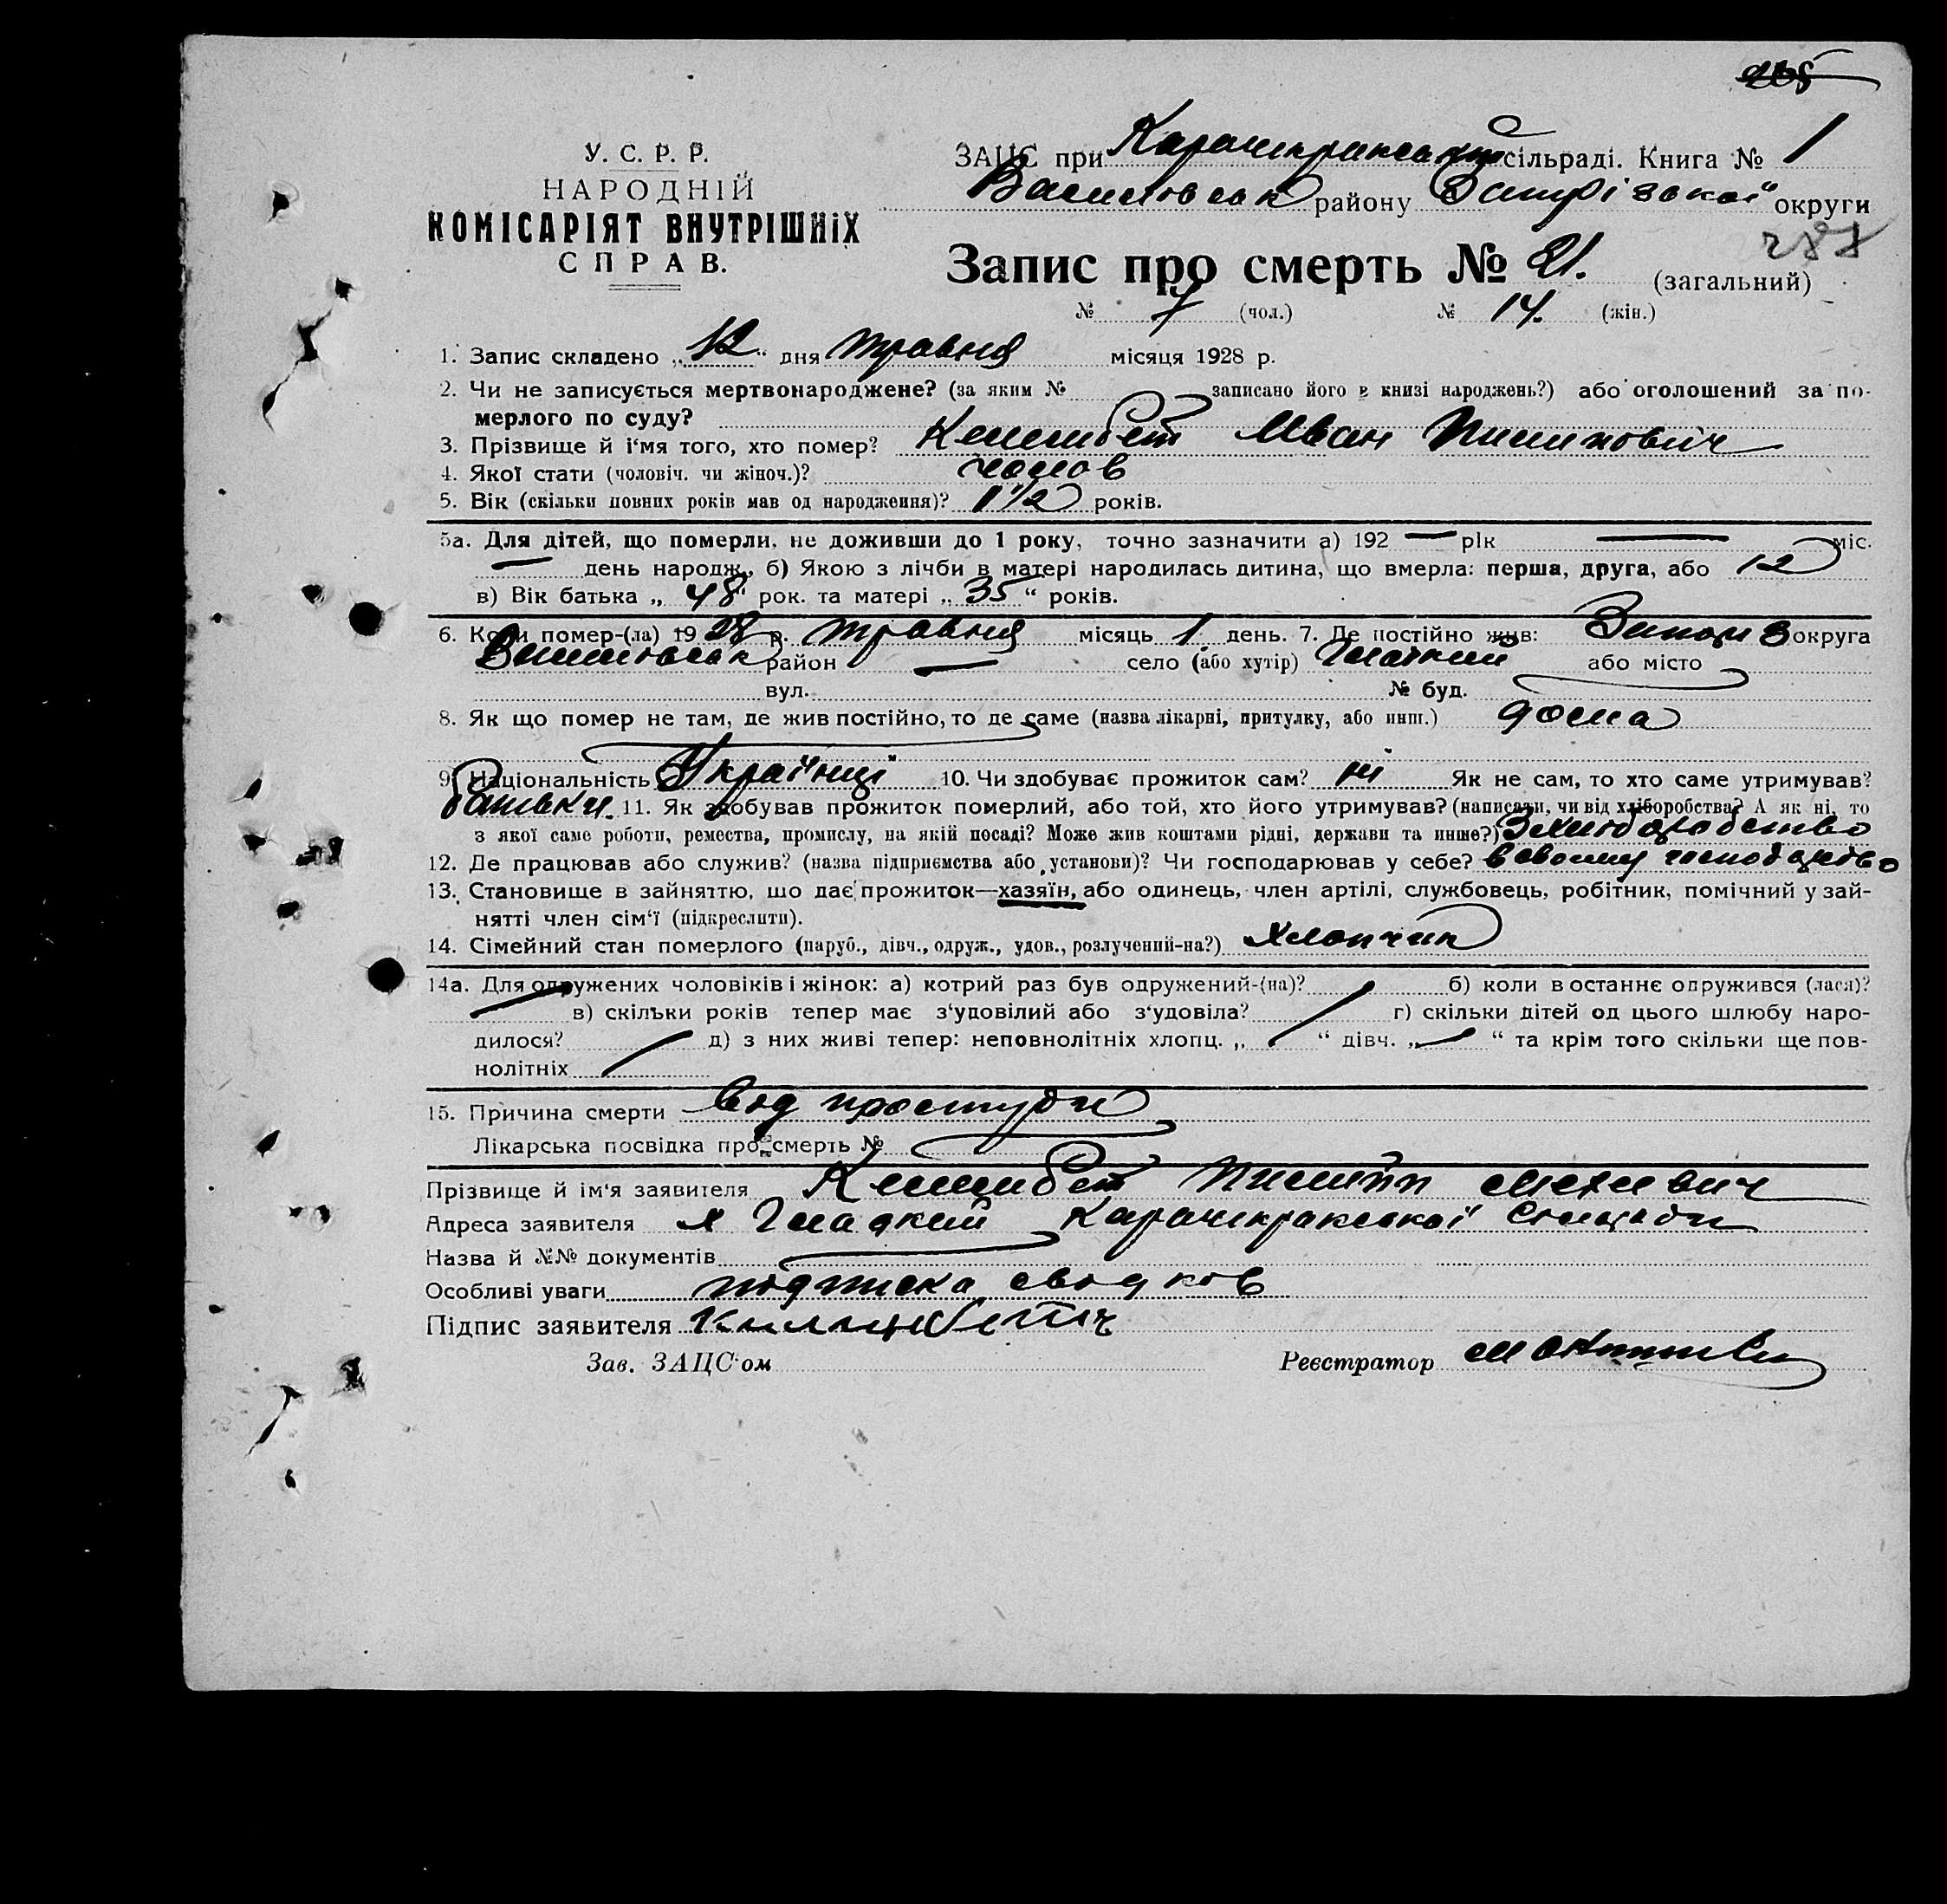 У. С. Р. Р.
НАРОДНІЙ
КОМІСАРІЯТ ВНУТРІШНІХ
СПРАВ.
ЗАЦС при Карачекракській сільраді. Книга № 1
Василівськ району Запрізької округи
288
Запис про смерть № 21. (загальний)
№ 7 (чол.) № 14. (жін.)
1. Запис складено „12“ дня травня місяця 1928 р.
2. Чи не записується мертвонароджене? (за яким № записано його в книзі народжень?) або оголошений за по-
мерлого по суду?
3. Прізвище й і‘мя того, хто помер? Келембет Иван Пилипович
4. Якої стати (чоловіч. чи жіноч.)? чолов
5. Вік (скільки повних років мав од народження)? 1 1/2 років.
5а. Для дітей, що померли, не доживши до 1 року, точно зазначити а) 192 — рік — міс.
— день народж., б) Якою з лічби в матері народилась дитина, що вмерла: перша, друга, або 12
в) Вік батька „48“ рок. та матері „35“ років.
6. Коли помер-(ла) 1928 р. травня місяць 1 день. 7. Де постійно жив: Запоріз округа
Василівськ район — село (або хутір) Гладкий або місто
вул. № буд.
8. Як що помер не там, де жив постійно, то де саме (назва лікарні, притулку, або инш.) дома
9. Національність Україньці 10. Чи здобуває прожиток сам? ні Як не сам, то хто саме утримував?
батьки. 11. Як здобував прожиток померлий, або той, хто його утримував? (написати, чи від хліборобства? А як ні, то
з якої саме роботи, ремества, промислу, на якій посаді? Може жив коштами рідні, держави та инше?) З хлібо
12. Де працював або служив? (назва підприємства або установи)? Чи господарював у себе? в своему
13. Становище в зайняттю, що дає прожиток—хазяїн, або одинець, член артілі, службовець, робітник, помічний у зай-
нятті член сім‘ї (підкреслити).
14. Сімейний стан померлого (паруб., дівч., одруж., удов., розлучений-на?) хлопчик
14а. Для одружених чоловіків і жінок: а) котрий раз був одружений-(на)? б) коли в останнє одружився (лася)?
в) скільки років тепер має з‘удовілий або з‘удовіла? г) скільки дітей од цього шлюбу наро-
дилося? д) з них живі тепер: неповнолітніх хлопц. „ “ дівч. „ “ та крім того скільки ще пов-
нолітніх
15. Причина смерти від простуди
Лікарська посвідка про смерть №
Прізвище й ім‘я заявителя Келембет Пилип
Адреса заявителя х Гладкий Карачекракської
Назва й №№ документів
Особливі уваги подписка
Підпис заявителя
Зав. ЗАЦС‘ом Реєстратор